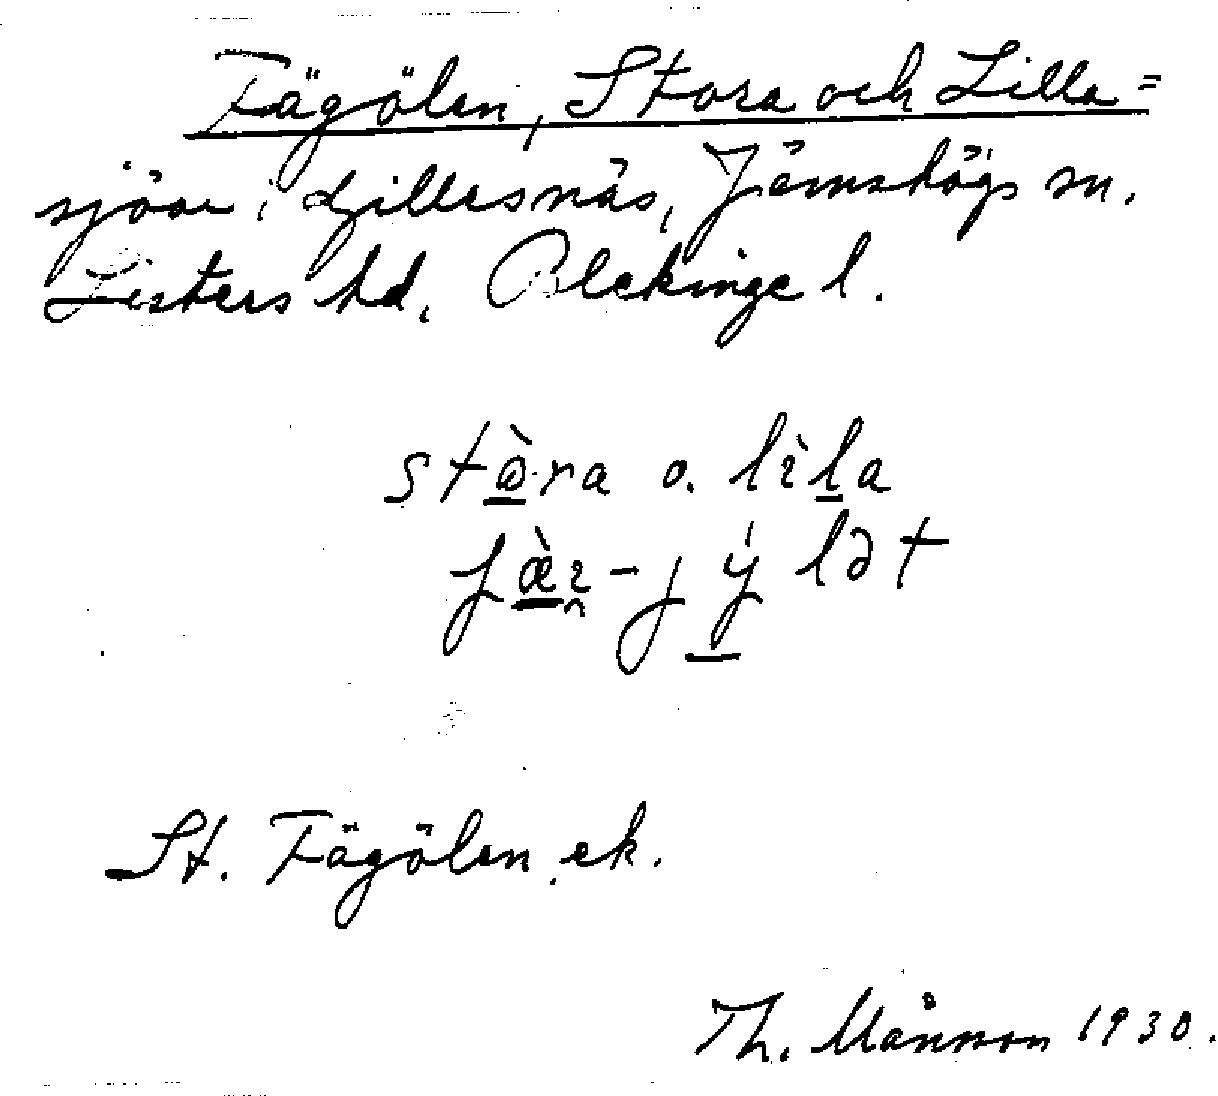 Fägölen, Stora och Lilla =
sjöar i Gillesnäs, Jämshögs sn.
Listers hd. Blekinge l.
stò̱ra o. lìḻa
fæ̱̀ɪ̯-jý̱lət
St. Fägölen, ek.
Th. Månsson 1930.